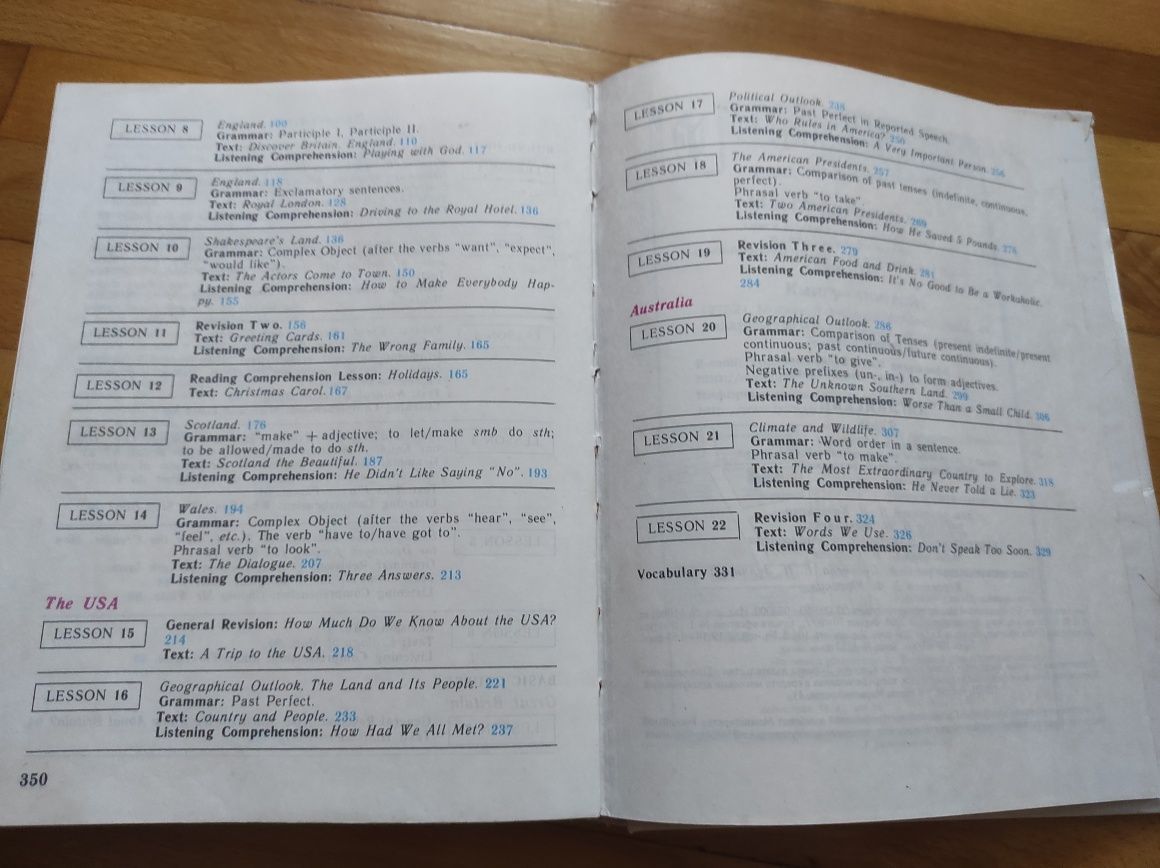 LESSON 8
England. 100
Grammar: Participle I, Participle II.
Text: Discover Britain. England. 110
Listening Comprehension: Playing with God. 117
LESSON 9
England. 118
Grammar: Exclamatory sentences.
Text: Royal London. 128
Listening Comprehension: Driving to the Royal Hotel. 136
LESSON 10
Shakespeare's Land. 136
Grammar: Complex Object (after the verbs "want", "expect",
"would like").
Text: The Actors Come to Town. 150
Listening Comprehension: How to Make Everybody Hap-
py. 155
LESSON 11
Revision Two. 156
Text: Greeting Cards. 161
Listening Comprehension: The Wrong Family. 165
LESSON 12
Reading Comprehension Lesson: Holidays. 165
Text: Christmas Carol. 167
LESSON 13
Scotland. 176
Grammar: "make" + adjective; to let/make smb do sth;
to be allowed/made to do sth.
Text: Scotland the Beautiful. 187
Listening Comprehension: He Didn't Like Saying "No". 193
LESSON 14
Wales. 194
Grammar: Complex Object (after the verbs "hear", "see",
"feel", etc.). The verb "have to/have got to".
Phrasal verb "to look".
Text: The Dialogue. 207
Listening Comprehension: Three Answers. 213
The USA
LESSON 15
General Revision: How Much Do We Know About the USA?
214
Text: A Trip to the USA. 218
LESSON 16
Geographical Outlook. The Land and Its People. 221
Grammar: Past Perfect.
Text: Country and People. 233
Listening Comprehension: How Had We All Met? 237
350
LESSON 17
Political Outlook. 238
Grammar: Past Perfect in Reported Speech.
Text: Who Rules in America? 250
Listening Comprehension: A Very Important Person. 256
LESSON 18
The American Presidents. 257
Grammar: Comparison of past tenses (indefinite, continuous,
perfect).
Phrasal verb "to take".
Text: Two American Presidents. 269
Listening Comprehension: How He Saved 5 Pounds. 278
LESSON 19
Revision Three. 279
Text: American Food and Drink. 281
Listening Comprehension: It's No Good to Be a Workaholic.
284
Australia
LESSON 20
Geographical Outlook. 286
Grammar: Comparison of Tenses (present indefinite/present
continuous; past continuous/future continuous).
Phrasal verb "to give".
Negative prefixes (un-, in-) to form adjectives.
Text: The Unknown Southern Land. 299
Listening Comprehension: Worse Than a Small Child. 306
LESSON 21
Climate and Wildlife. 307
Grammar: Word order in a sentence.
Phrasal verb "to make".
Text: The Most Extraordinary Country to Explore. 318
Listening Comprehension: He Never Told a Lie. 323
LESSON 22
Revision Four. 324
Text: Words We Use. 326
Listening Comprehension: Don't Speak Too Soon. 329
Vocabulary 331